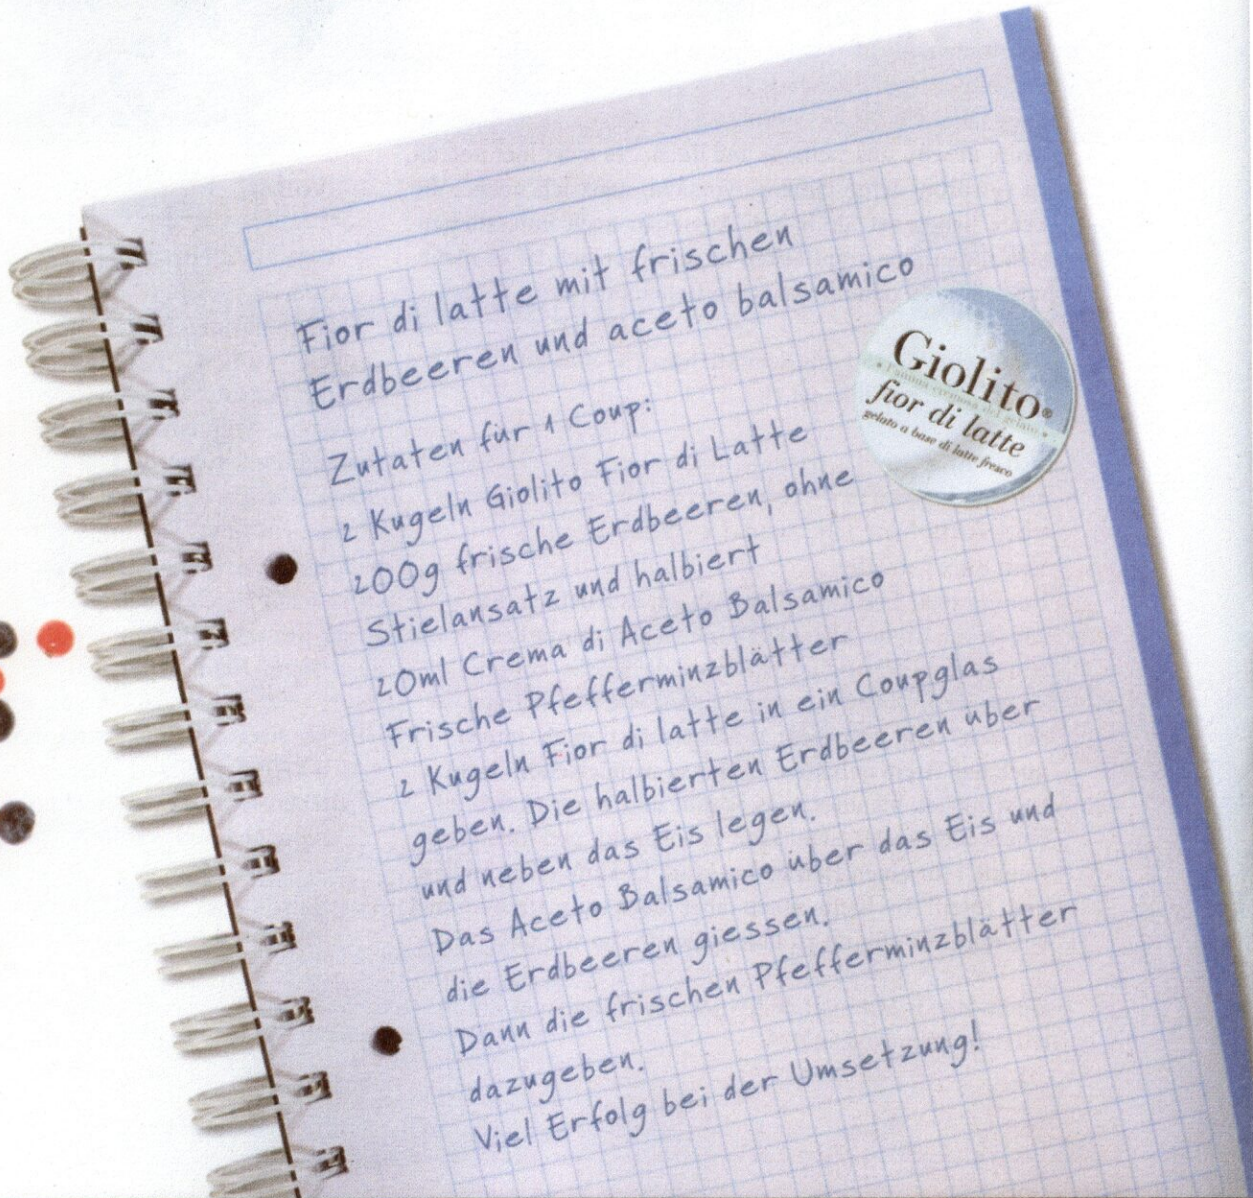 Fior di latte mit frischen
Erdbeeren und aceto balsamico
Zutaten für 1 Coup:
2 Kugeln Giolito Fior di Latte
200g frische Erdbeeren, ohne
Stielansatz und halbiert
20ml Crema di Aceto Balsamico
Frische Pfefferminzblätter
2 Kugeln Fior di latte in ein Coupglas
geben. Die halbierten Erdbeeren über
und neben das Eis legen.
Das Aceto Balsamico über das Eis und
die Erdbeeren giessen.
Dann die frischen Pfefferminzblätter
dazugeben.
Viel Erfolg bei der Umsetzung!
Giolito®
fior di latte
gelato a base di latte fresco